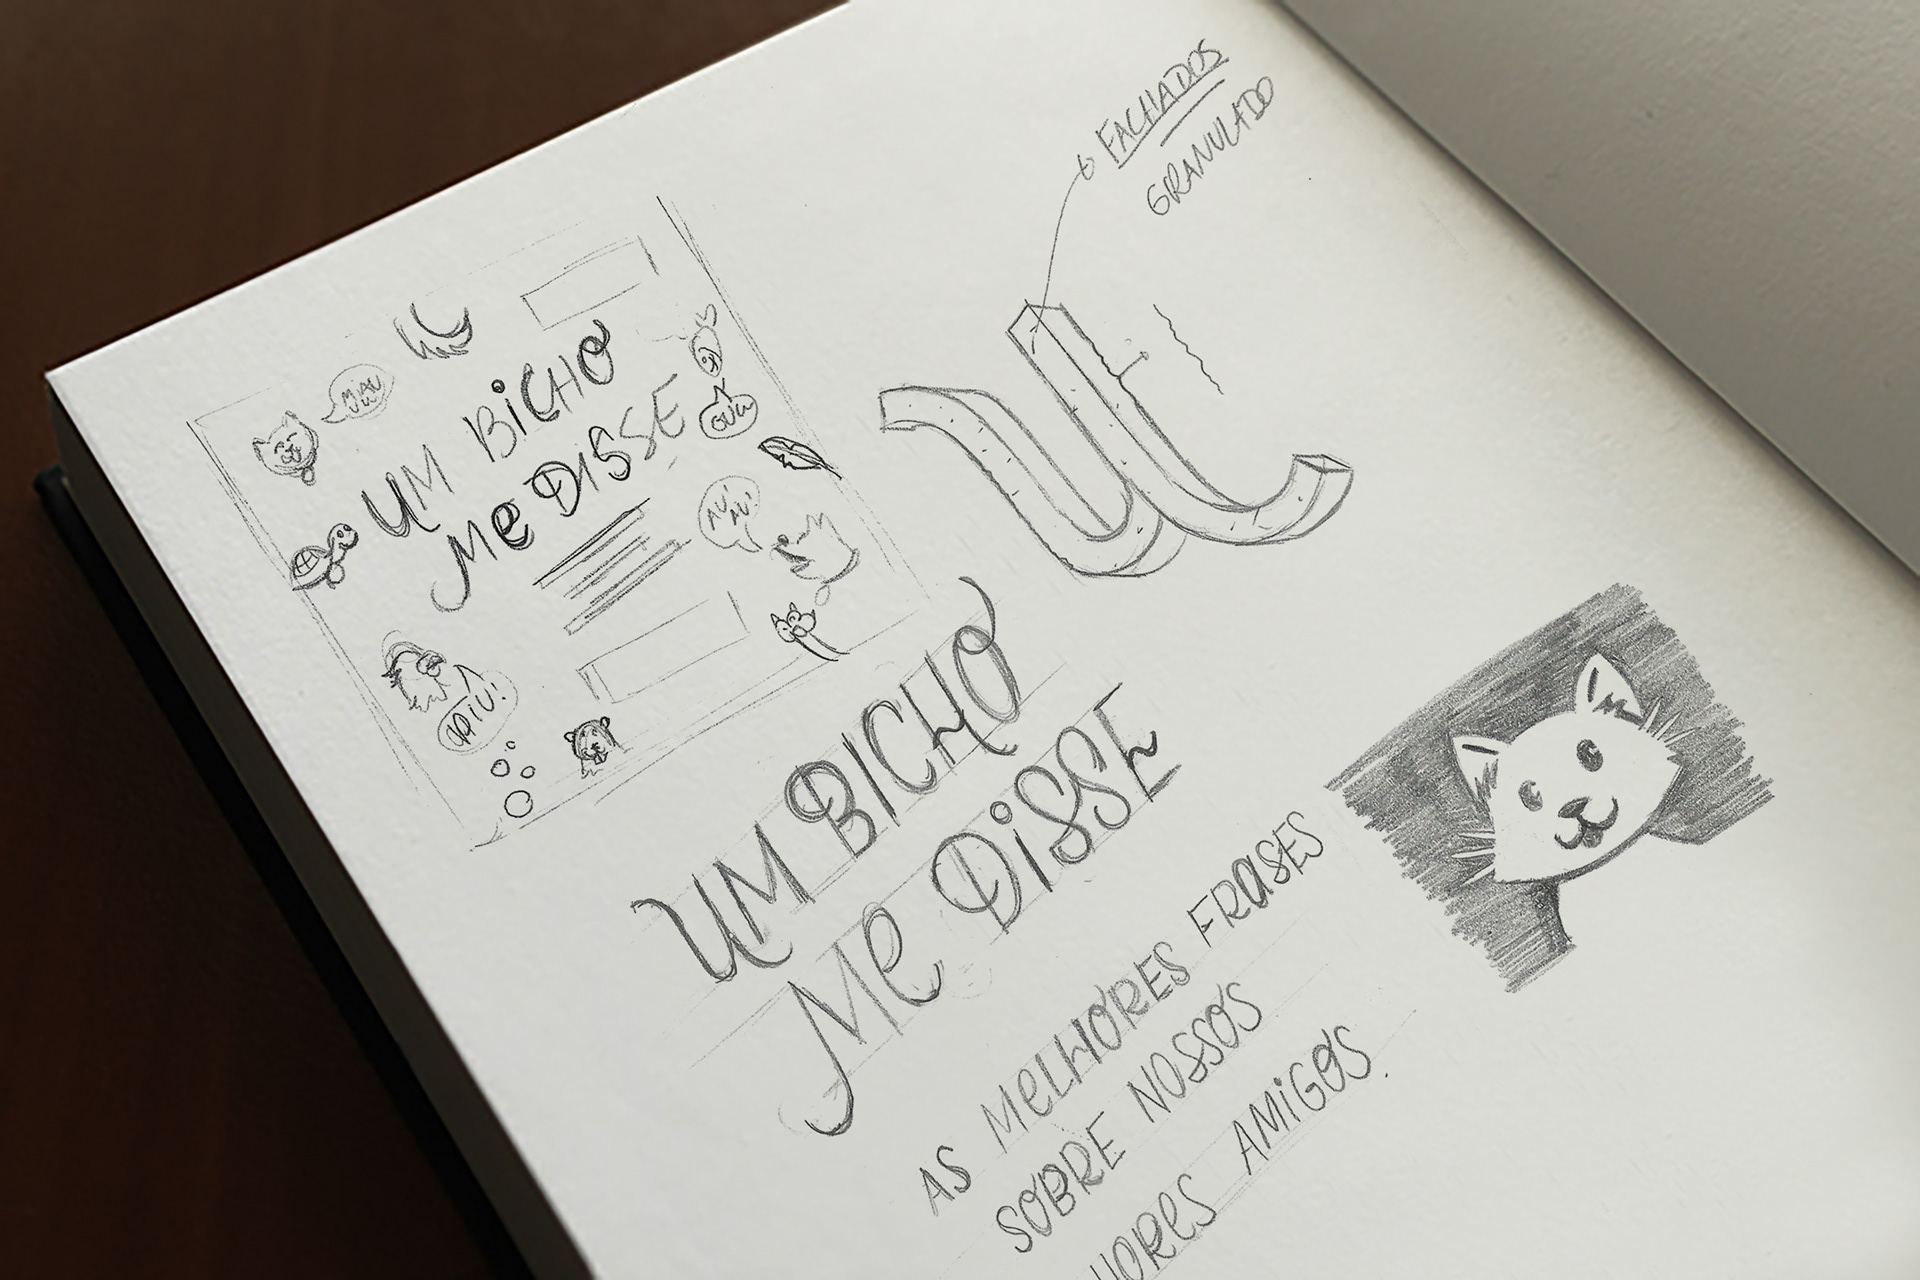 MIAU
UM BICHO
ME DISSE
AU!
AU!
PIU!
FACHADOS
GRANULADO
UM BICHO
ME DISSE
AS MELHORES FRASES
SOBRE NOSSOS
HORES AMIGOS.